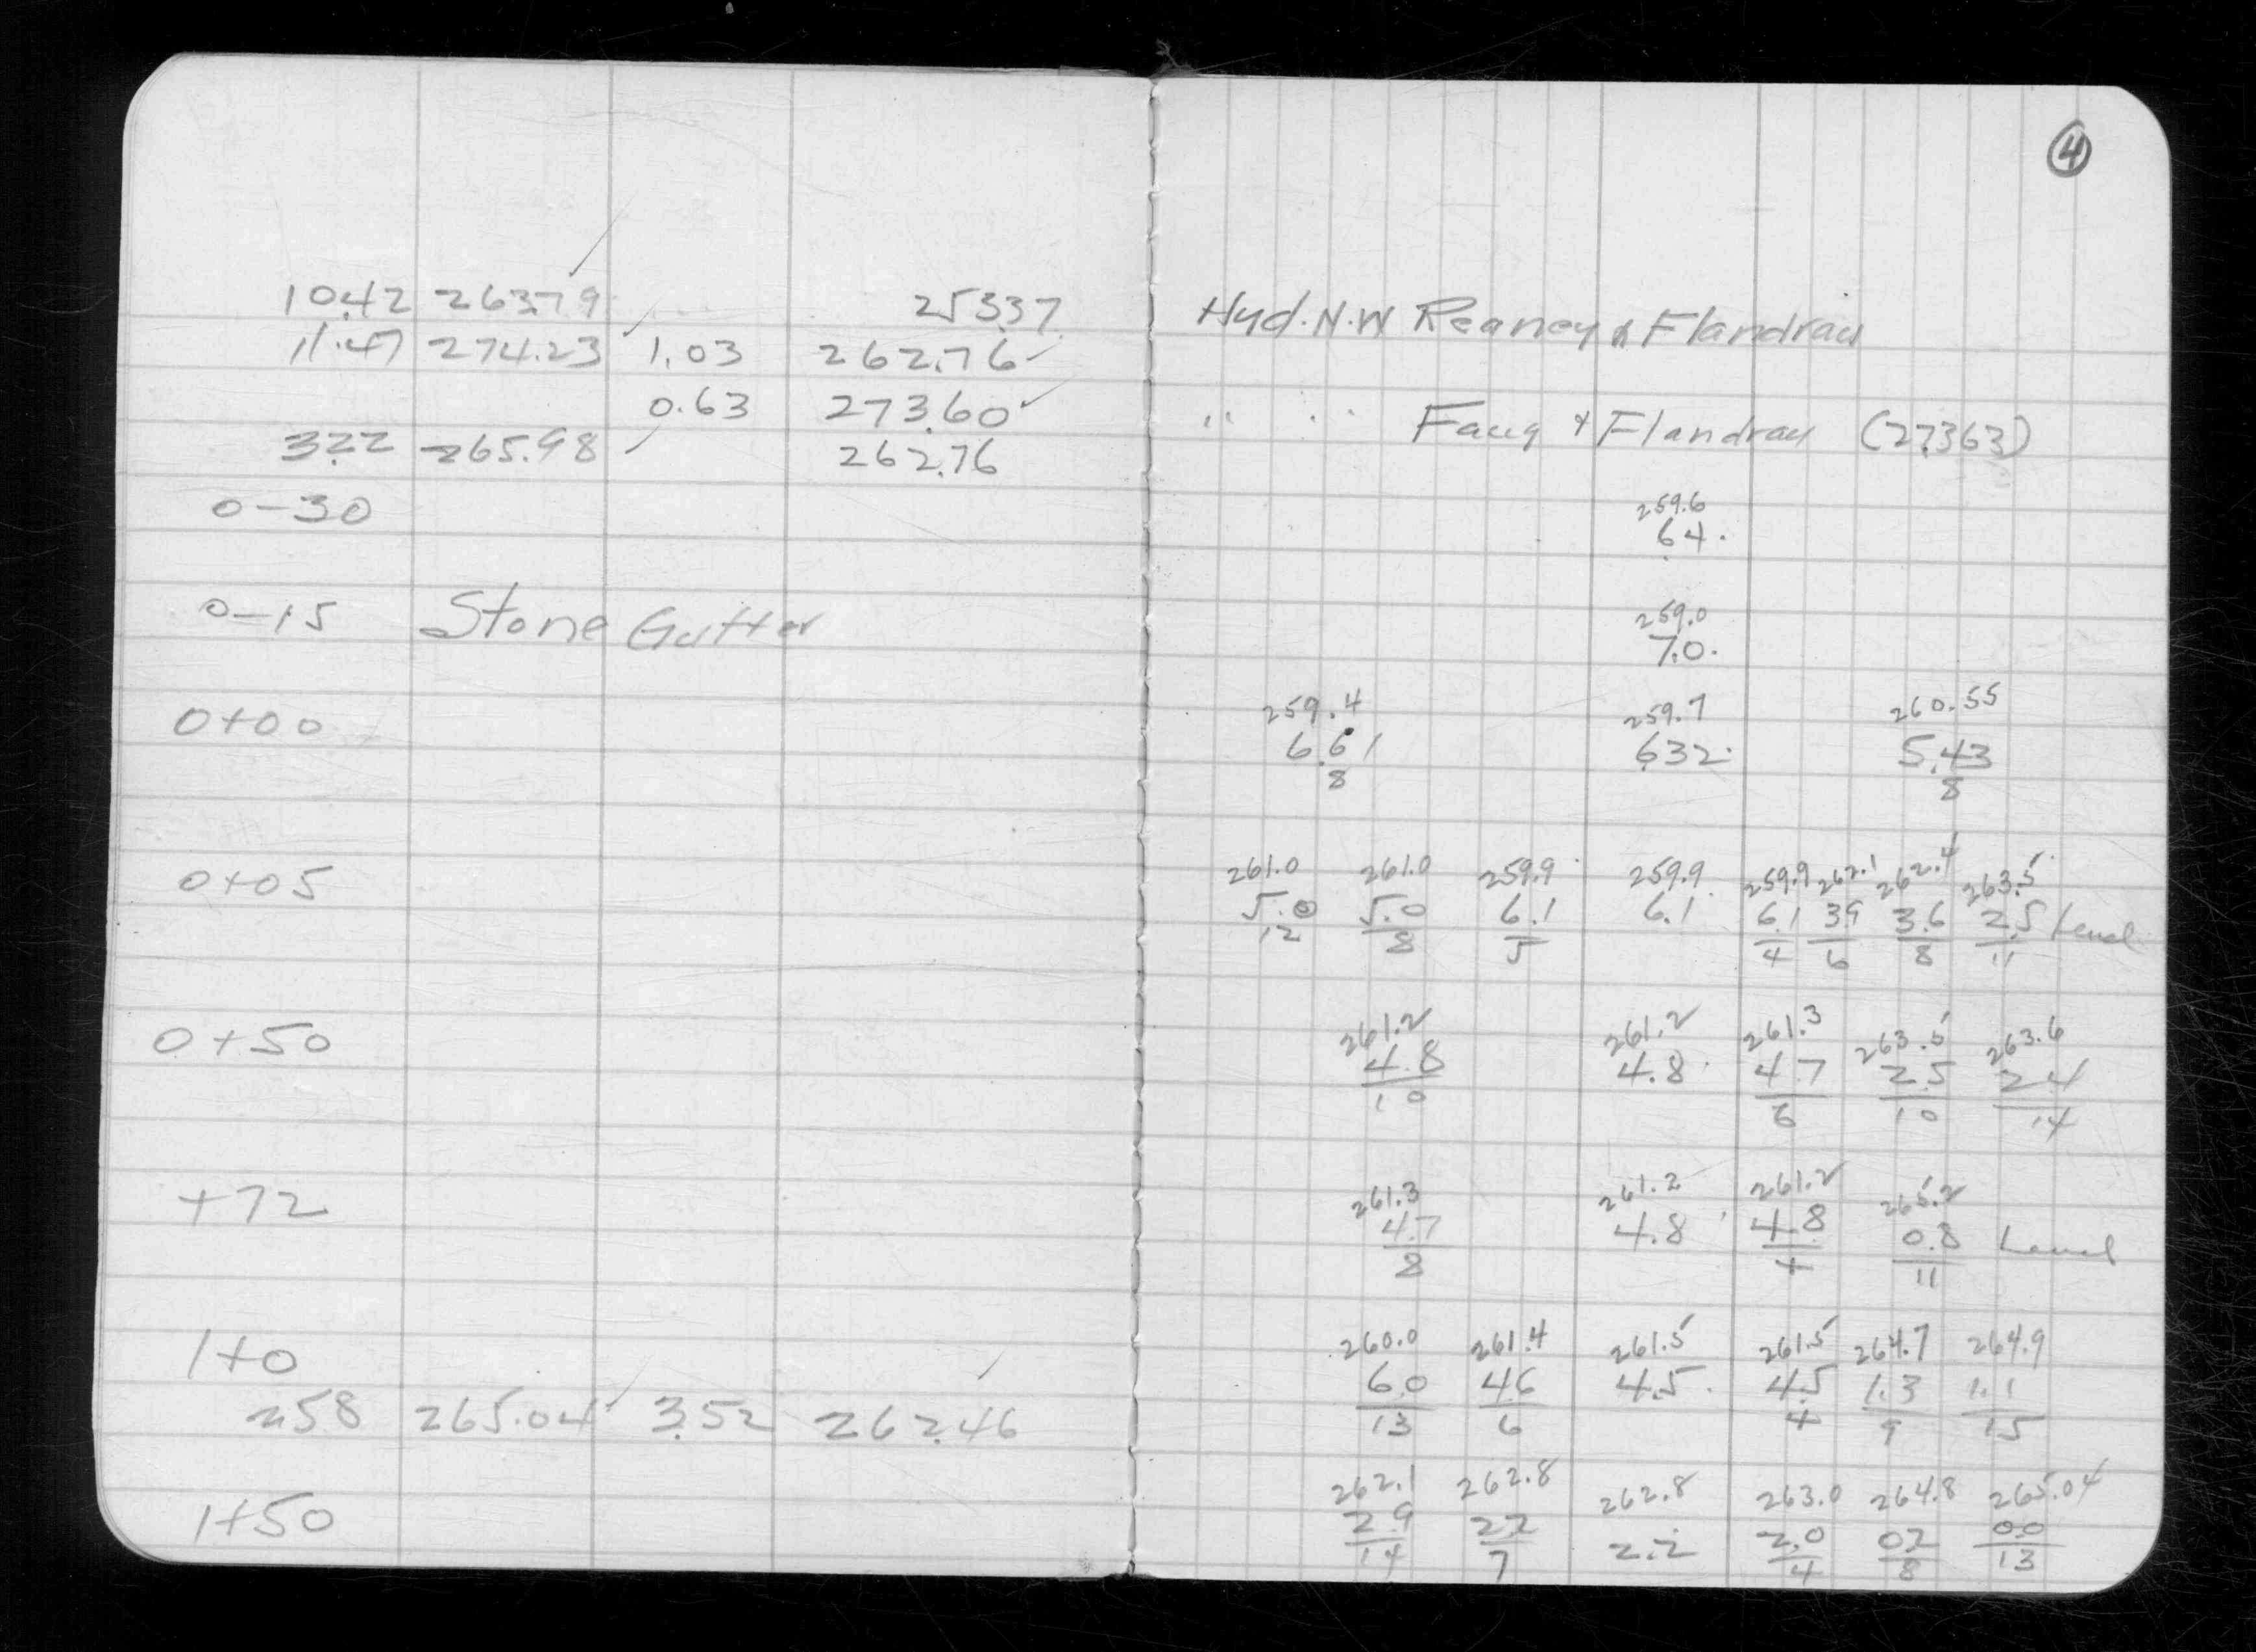 4
10.42 263.79 253.37 Hyd. N.W Reaney & Flandrau
11.47 274.23 1.03 262.76
0.63 273.60 " " Fauq & Flandrau (273.63)
3.22 265.98 262.76
259.6
0-30 6.4
259.0
0-15 Stone Gutter 7.0
259.4 259.7 260.55
0+00 6.61 6.32 5.43
8 8
261.0 261.0 259.9 259.9 259.9 262.1 262.4 263.5
0+05 5.0 5.0 6.1 6.1 6.1 3.9 3.6 2.5 Level
12 8 5 4 6 8 11
261.2 261.2 261.3 263.5 263.6
0+50 4.8 4.8 4.7 2.5 2.4
10 6 10 14
261.3 261.2 261.2 265.2
+72 4.7 4.8 4.8 0.8 Level
8 4 11
260.0 261.4 261.5 261.5 264.7 264.9
1+0 6.0 4.6 4.5 4.5 1.3 1.1
13 6 4 9 15
2.58 265.04 3.52 262.46
262.1 262.8 262.8 263.0 264.8 265.04
1+50 2.9 2.2 2.2 2.0 0.2 0.0
14 7 4 8 13